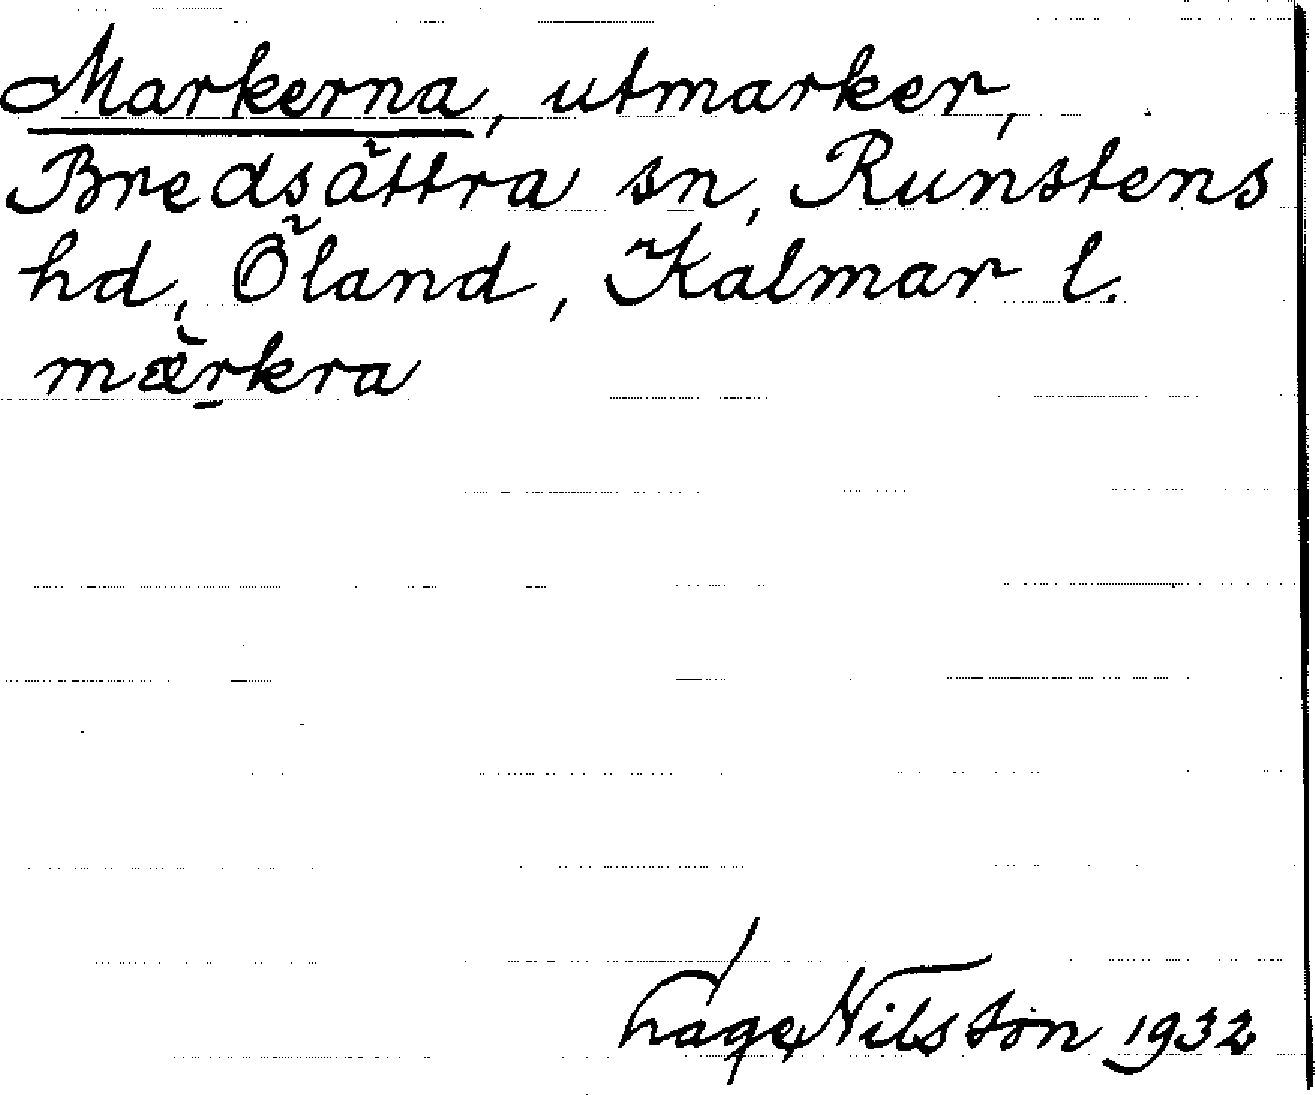 Markerna, utmarker,
Bredsättra sn, Runstens
hd, Öland, Kalmar l.
mæ̀rkra
Nilsson 1932